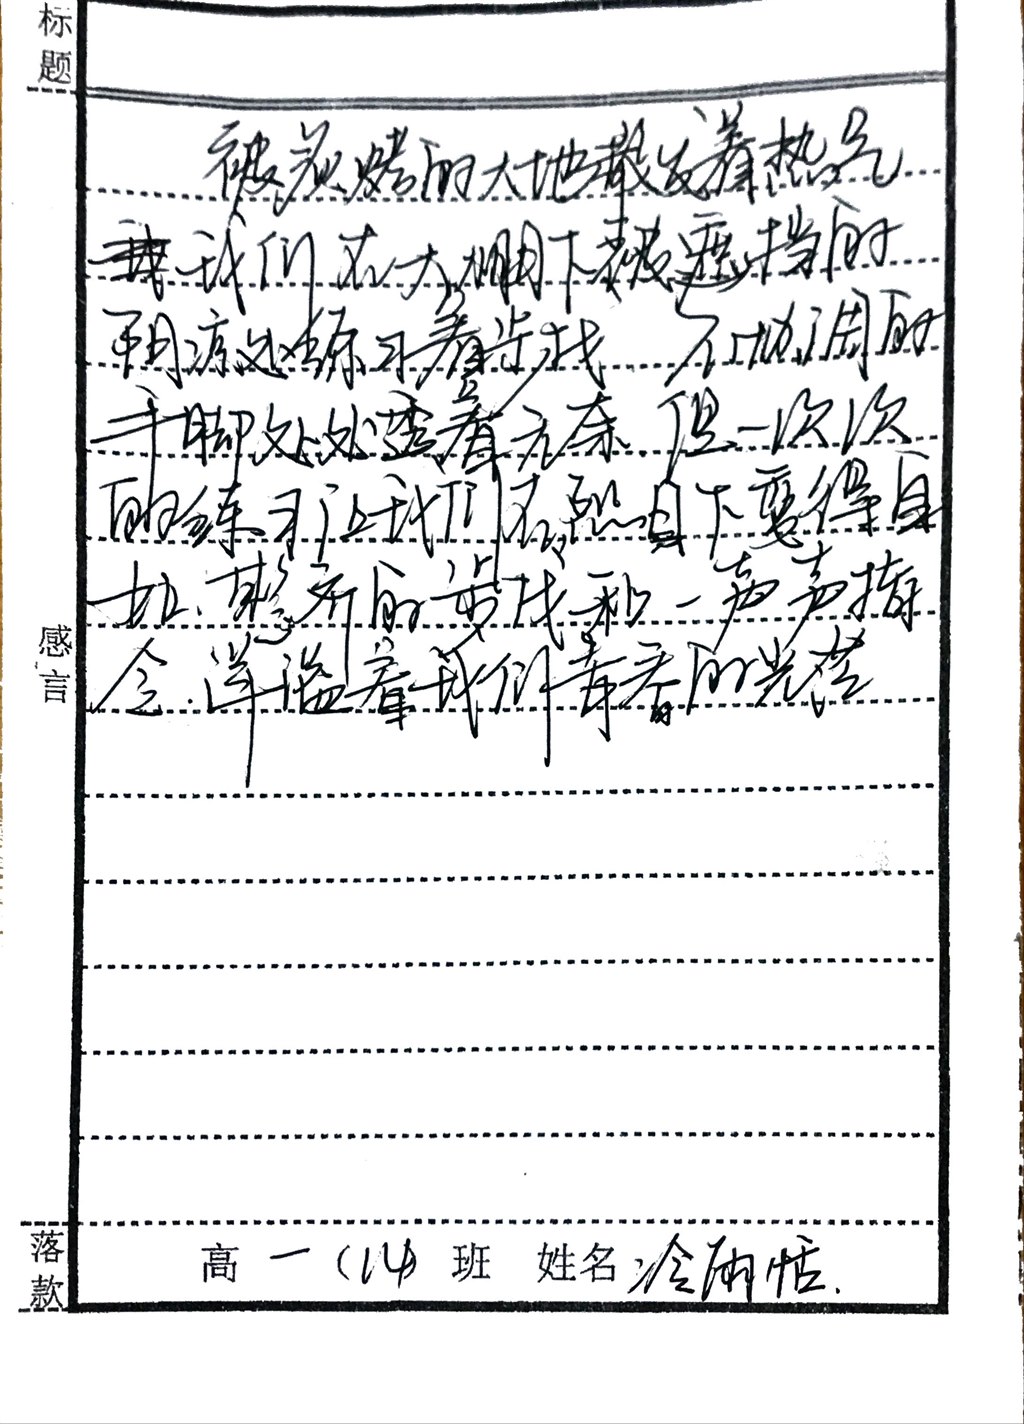 标题
被炙烤的大地散发着热气
我们在大棚下被遮挡的
阴凉处练习着步伐 不协调的
手脚处处透着无奈.但一次次
的练习让我们在烈日下变得自
如.整齐的步伐和一声声指
令.洋溢着我们青春的光芒
感言
落款
高一(14)班 姓名 冷雨恬.